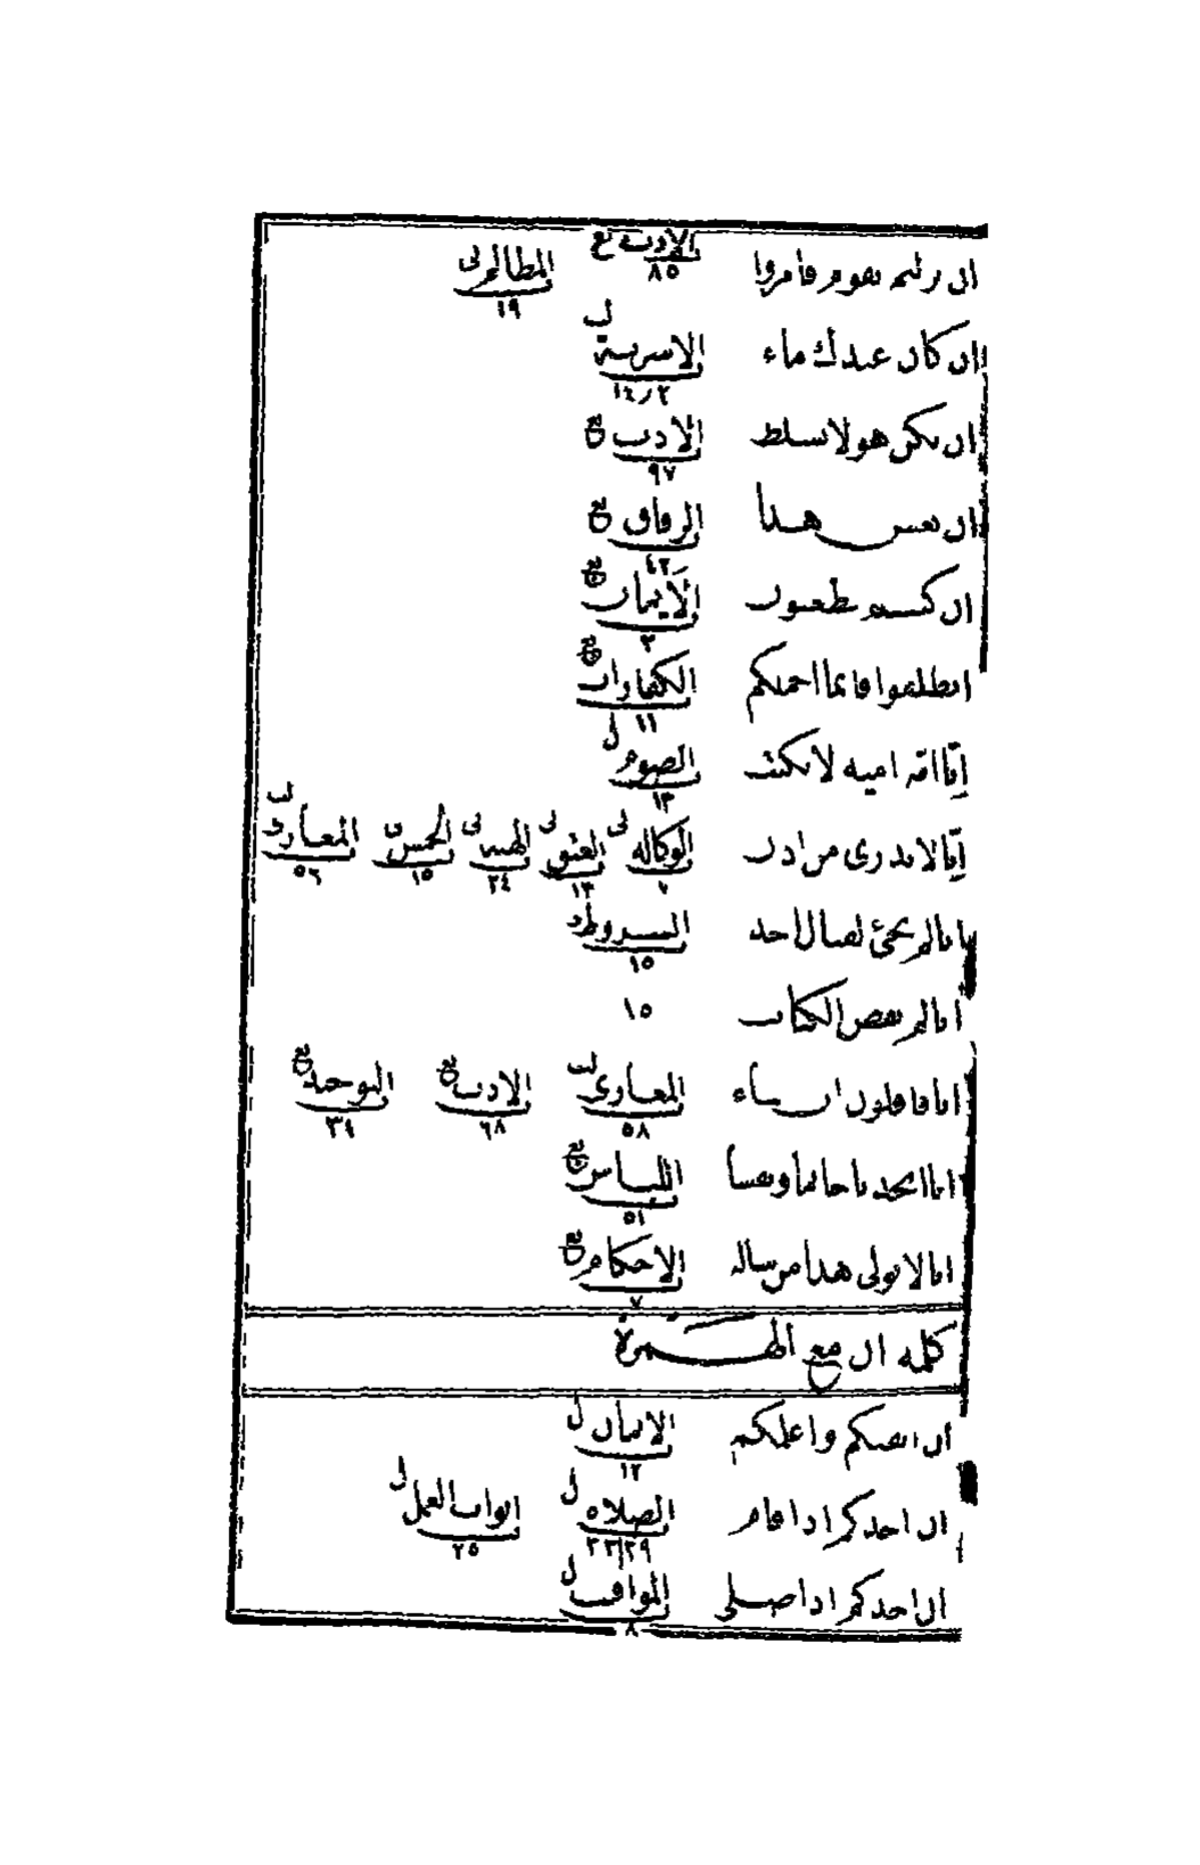 ان نزلتم بقوم فأمروا الادب ع ٨٥ المظالم لى ١٩
ان كان عندك ماء الاشربة ب ١٤/٢
ان يكن هو لا تسلط الادب ع ٩٧
ان يعش هذا الرقاق ع ٤٢
ان كنتم تطعنون الايمان ع ٢
انطلقوا فانما احملكم الكفارات ع ١١
إنّا امّة امية لا نكتب الصوم ل ١٣
إنّا لا ندرى من اذن الوكاله لى ٧ العتق لى ١٣ الهبه لى ٢٤ الخمس ى ١٥ المغازى ب ٥٦
انا لم نجئ لقتال احد الشروط ١٥
انا لم نقض الكتاب ١٥
انا قافلون ان شاء المغازى ب ٥٨ الادب ع ٦٨ التوحيد ع ٣١
انا اتخذنا خاتما ونقشنا اللباس ع ٥١
انا لا نولى هذا من ساله الاحكام ع ٧
كلمه ان مع الهمزة
ان اتقاكم واعلمكم الايمان ل ١٢
ان احدكم اذا قام الصلاه ل ٣٣/٢٩ ابواب العمل ل ٢٥
ان احدكم اذا صلى المواقيت ل ٨